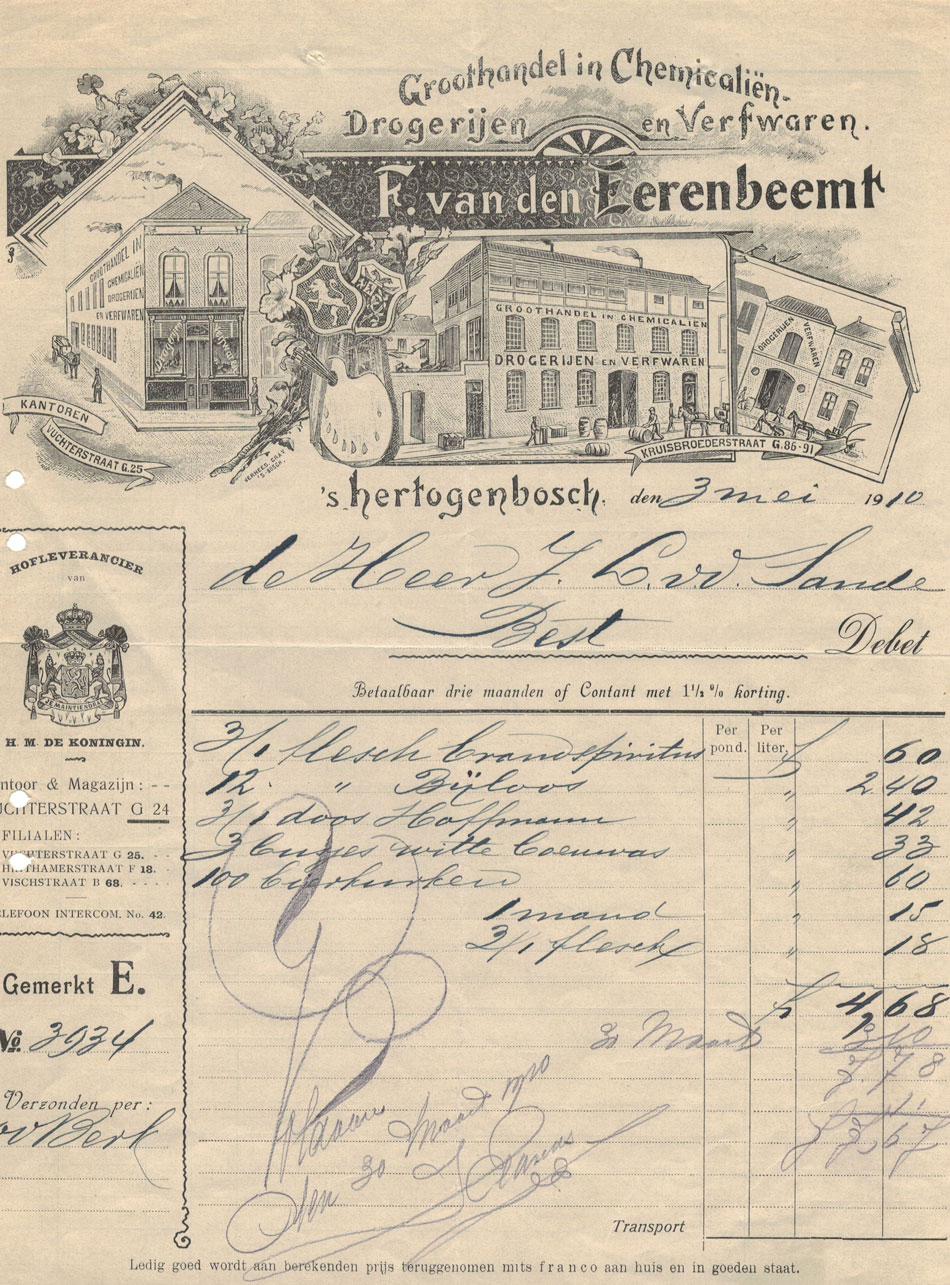 Groothandel in Chemicaliën.
Drogerijen en Verfwaren.
F. van den Eerenbeemt
GROOTHANDEL IN
CHEMICALIEN
DROGERIJEN
EN VERFWAREN
KANTOREN
VUCHTERSTRAAT G.25
GROOTHANDEL IN CHEMICALIEN
DROGERIJEN EN VERFWAREN
DROGERIJEN
VERFWAREN
KRUISBROEDERSTRAAT G.86-91
's hertogenbosch, den 3 mei 1910
de Heer J. C. v.d. Sande
Best Debet
Betaalbaar drie maanden of Contant met 1 1/2 % korting.
HOFLEVERANCIER
van
JE MAINTIENDRAI
H. M. DE KONINGIN.
ntoor & Magazijn: - -
UCHTERSTRAAT G 24
FILIALEN:
VUCHTERSTRAAT G 25.
HINTHAMERSTRAAT F 18.
VISCHSTRAAT B 68.
ELEFOON INTERCOM. No. 42.
Gemerkt E.
No. 3934
Verzonden per:
Per pond. Per liter.
3/1 flesch brandspiritus f 60
12 " Bijloos " 2 40
3/1 doos Hoffmann " 42
3 busjes witte " 33
100 bierkurken " 60
1 mand " 15
3/1 flesch " 18
f 4,68
30 Maart 3 10
7.78
11
f 7,67
Voldaan
den 30 Maart 1910
Transport
Ledig goed wordt aan berekenden prijs teruggenomen mits franco aan huis en in goeden staat.